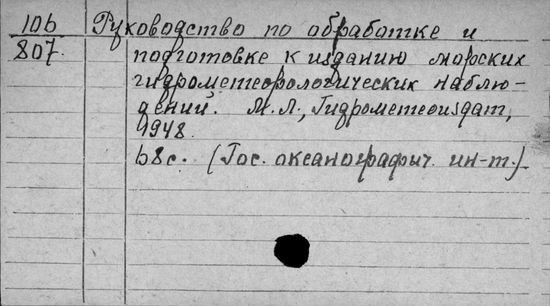 10b Руководство по обработке и
807. подготовке к изданию морских
гидрометеорологических наблю-
дений. М.Л., Гидрометеоиздат,
1948.
68с. (Гос. океанографич. ин-т.)